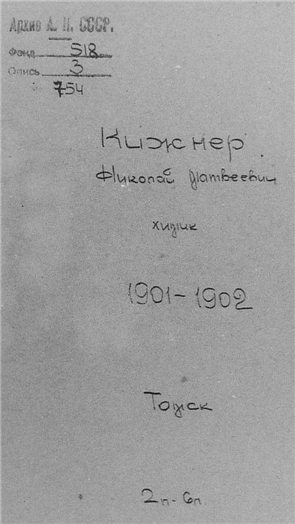 Архив А. Н. СССР.
Фонд 518
Опись 3
№ 754
Кижнер
Николай Матвеевич
химик
1901-1902
Томск
2п-6п.